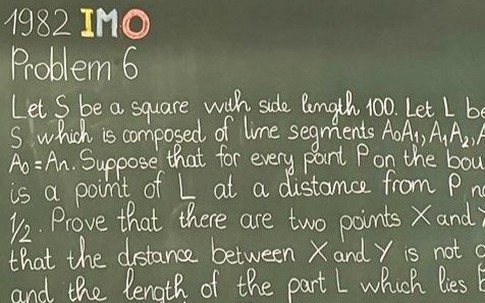 1982 IMO
Problem 6
Let S be a square with side length 100. Let L be
S which is composed of line segments A₀A₁, A₁A₂,
A₀ = An. Suppose that for every point P on the bou
is a point of L at a distance from P
1/2. Prove that there are two points X and
that the distance between X and Y is not
and the length of the part L which lies